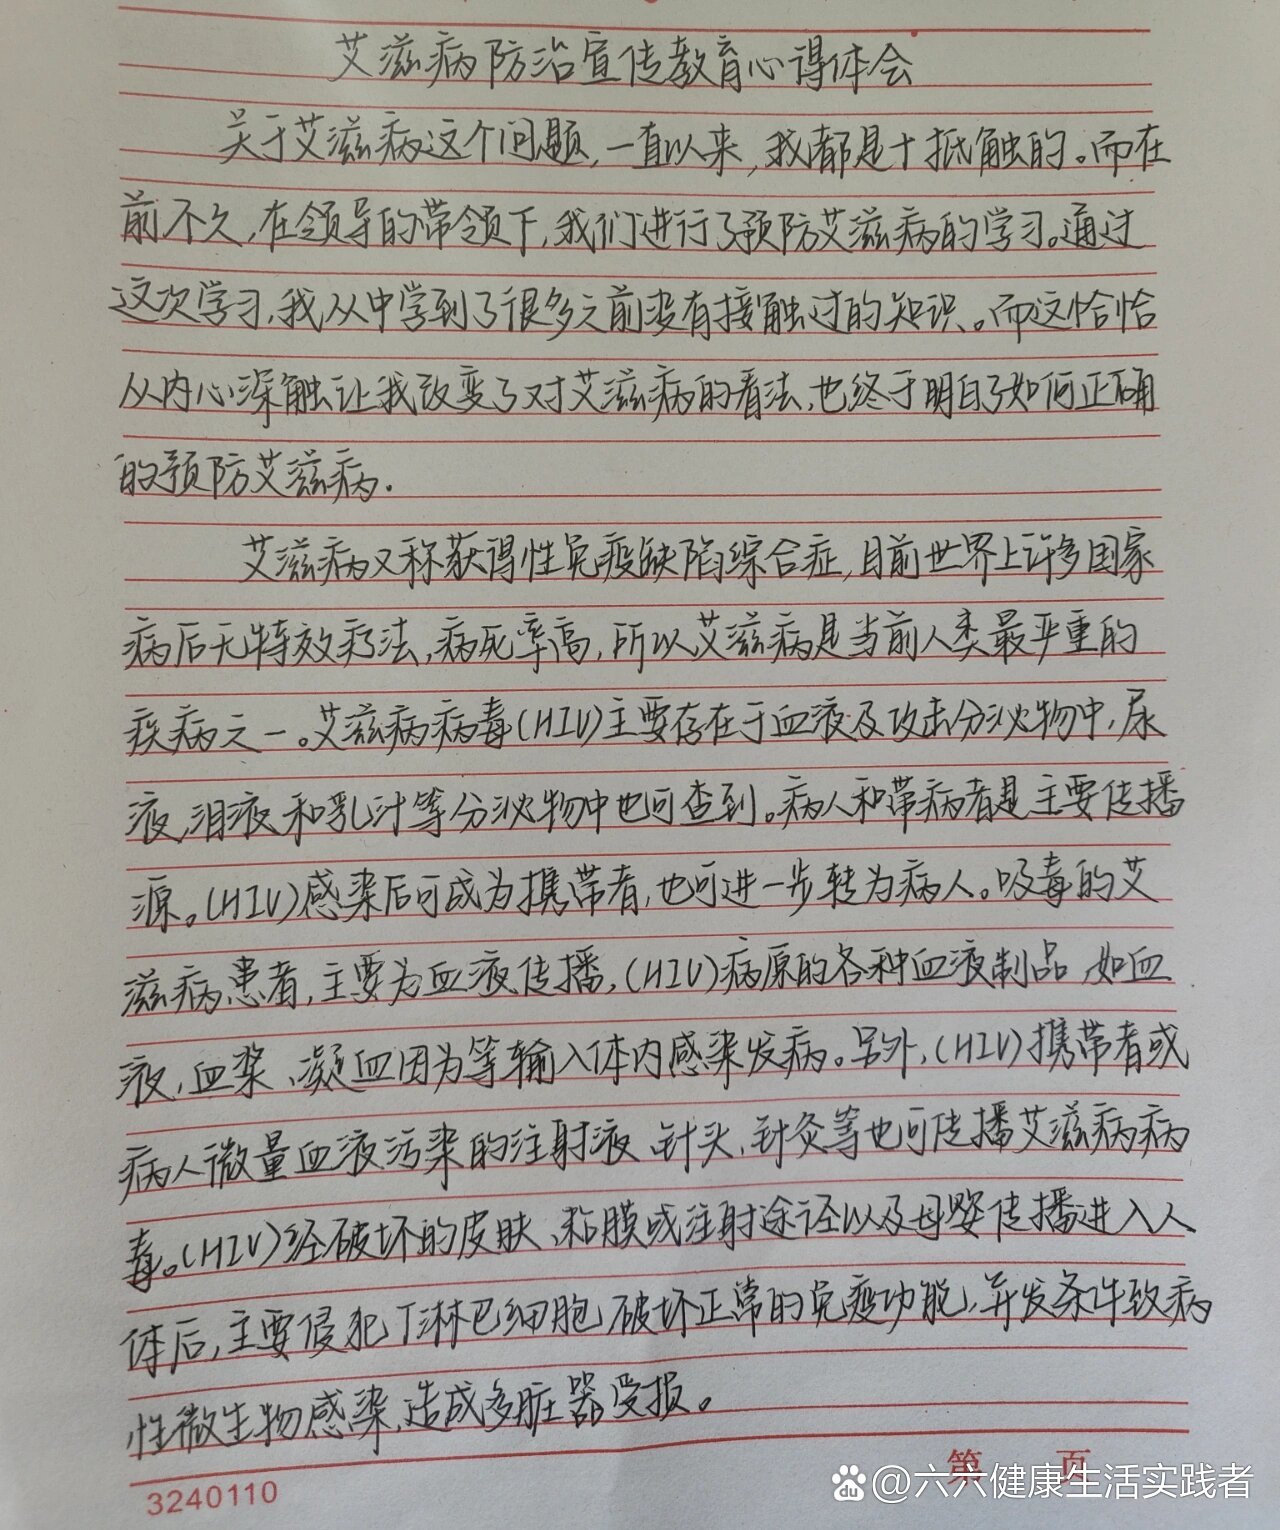 艾滋病防治宣传教育心得体会
关于艾滋病这个问题,一直以来,我都是十抵触的。而在
前不久,在领导的带领下,我们进行了预防艾滋病的学习。通过
这次学习,我从中学到了很多之前没有接触过的知识。而这恰恰
从内心深触让我改变了对艾滋病的看法,也终于明白了如何正确
的预防艾滋病.
艾滋病又称获得性免疫缺陷综合症,目前世界上许多国家
病后无特效疗法,病死率高,所以艾滋病是当前人类最严重的
疾病之一。艾滋病病毒(HIV)主要存在于血液及攻击分泌物中,尿
液,泪液和乳汁等分泌物中也可查到。病人和带病者是主要传播
源。(HIV)感染后可成为携带者,也可进一步转为病人。吸毒的艾
滋病患者,主要为血液传播,(HIV)病原的各种血液制品,如血
液,血浆、凝血因为等输入体内感染发病。另外,(HIV)携带者或
病人微量血液污染的注射液、针头,针灸等也可传播艾滋病病
毒。(HIV)经破坏的皮肤、粘膜或注射途径以及母婴传播进入人
体后,主要侵犯T淋巴细胞,破坏正常的免疫功能,并发条件致病
性微生物感染,造成多脏器受损。
第 页
3240110
du @六六健康生活实践者